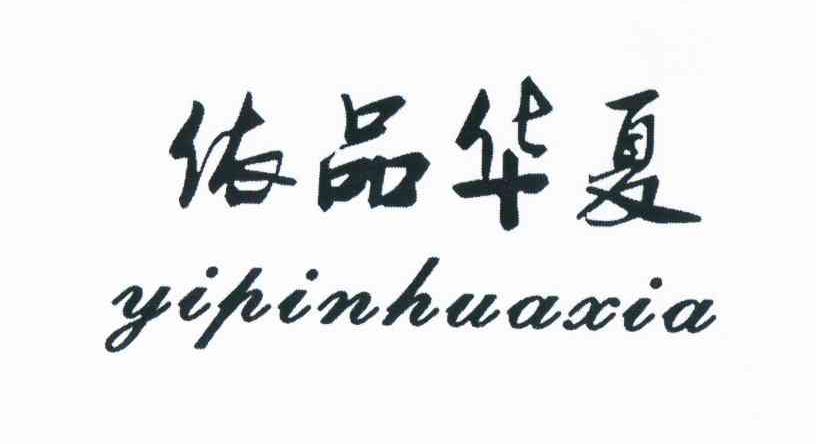 依品华夏
yipinhuaxia